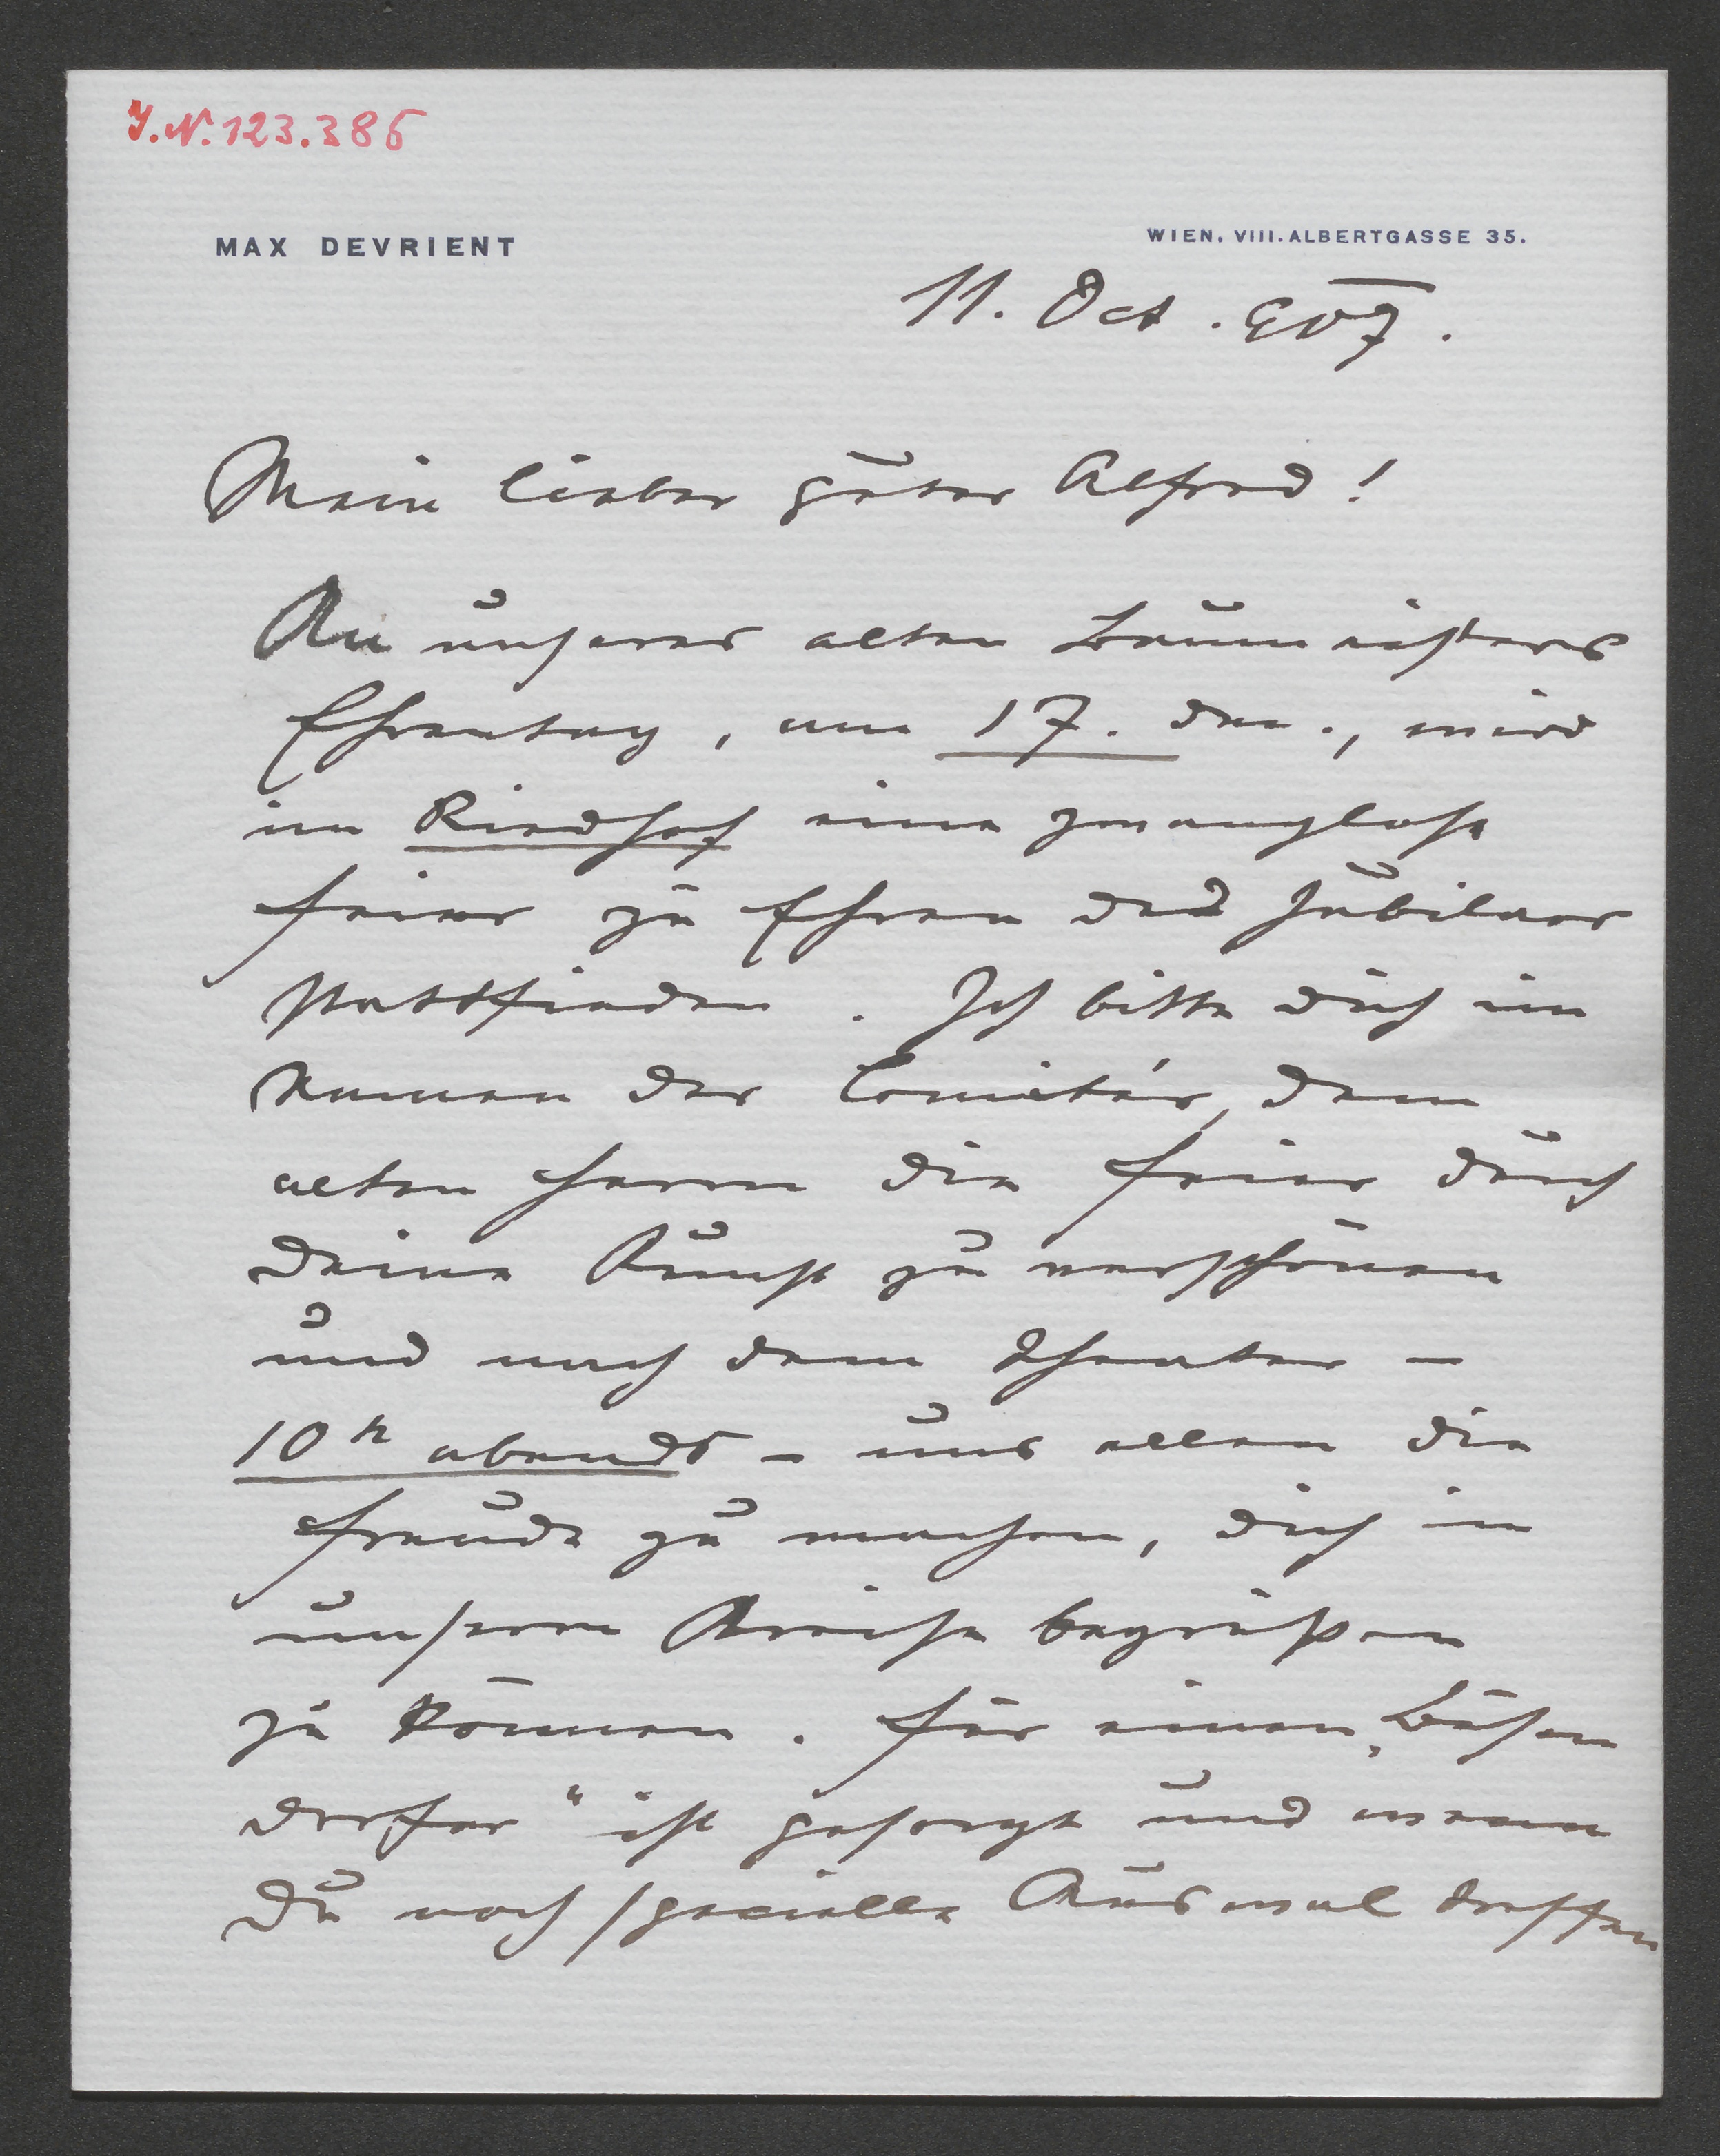 J.N. 123.386
MAX DEVRIENT
WIEN, VIII. ALBERTGASSE 35.
11. Oct. 907.
Mein lieber guter Alfred!
An unseres alten Baumeisters
Ehrentag, am 17. den., wird
im Riedhof eine zwanglose
Feier zu Ehren des Jubilars
stattfinden. Ich bitte dich im
Namen des Comités, dem
alten Herrn die Feier durch
Deine Kunst zu verschönen
und nach dem Theater –
10h abends – uns allen die
Freude zu machen, dich in
unserm Kreise begrüßen
zu können. Für einen „Bösen
dorfer“ ist gesorgt und wenn
Du noch specielle Auswal treffen